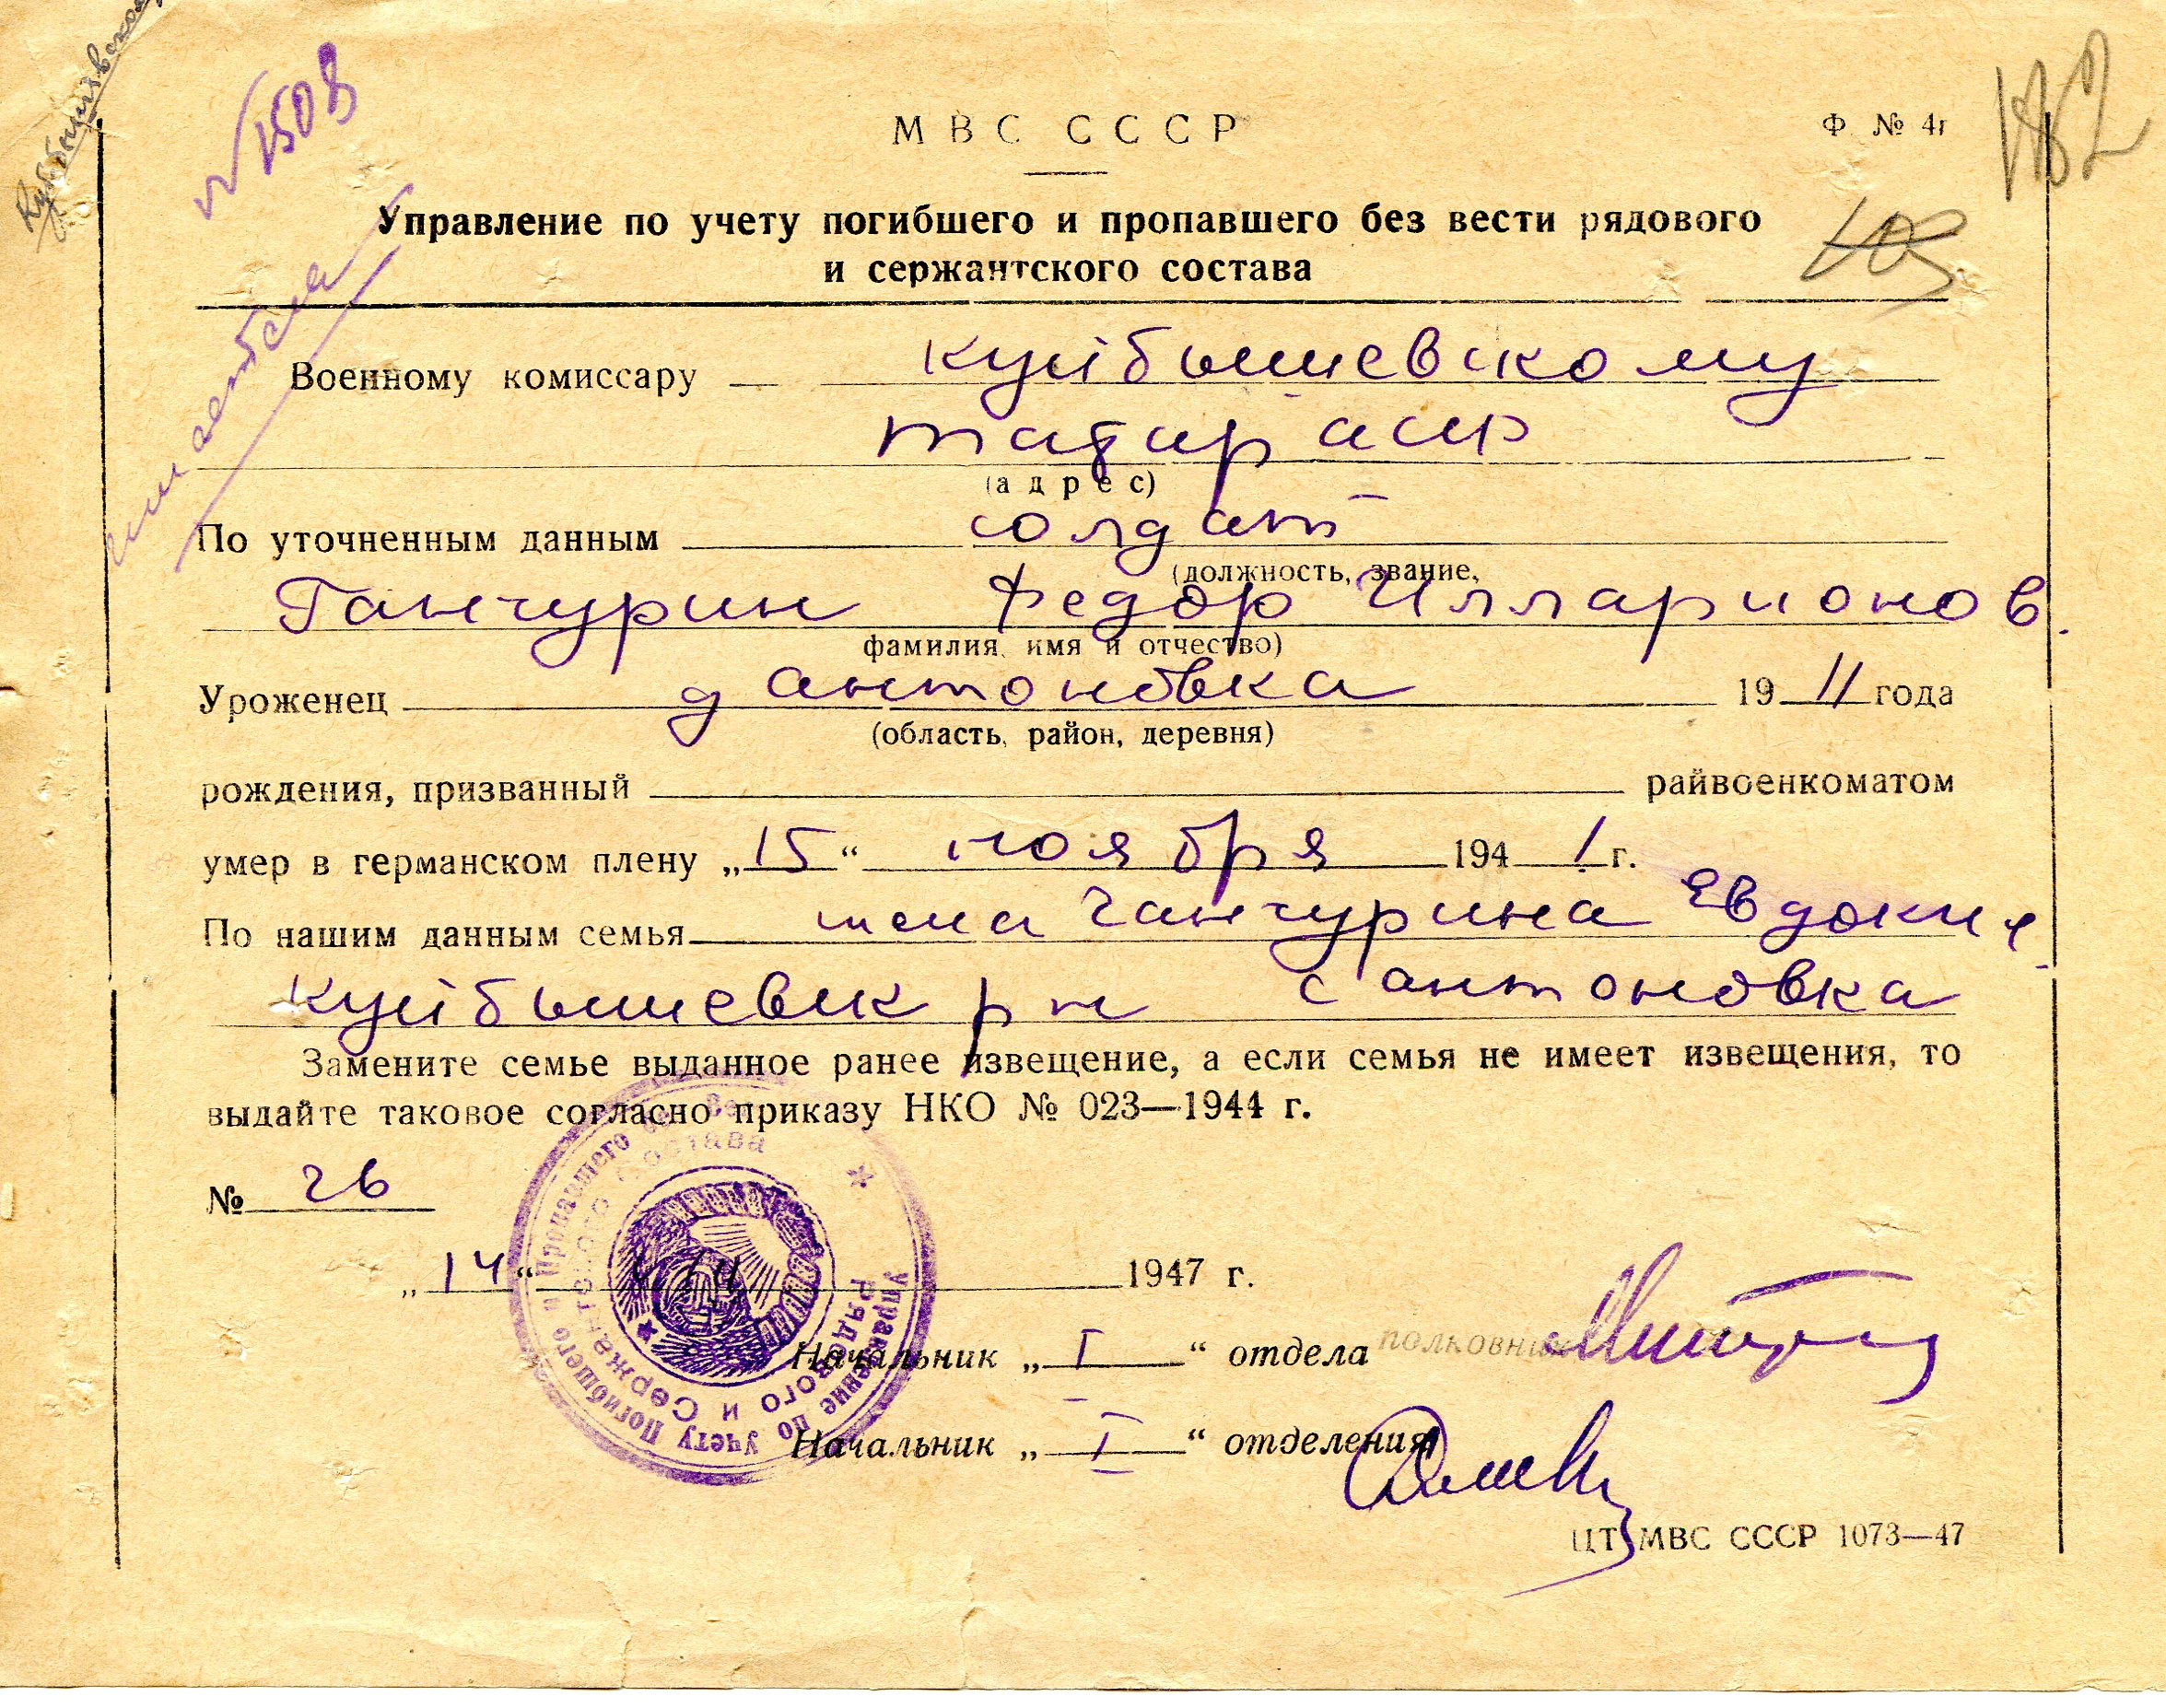 Куйбышевском
√ 1508
МВС СССР
Ф № 4г
Управление по учету погибшего и пропавшего без вести рядового
и сержантского состава
Военному комиссару — Куйбышевскому
татар асср
(адрес)
По уточненным данным солдат
(должность, звание,
Ганчурин Федор Илларионов.
фамилия, имя и отчество)
Уроженец д антоновка 1911 года
(область, район, деревня)
рождения, призванный райвоенкоматом
умер в германском плену „15“ ноября 1941 г.
По нашим данным семья жена Ганчурина Евдокия
Куйбышевск рн с антоновка
Замените семье выданное ранее извещение, а если семья не имеет извещения, то
выдайте таковое согласно приказу НКО № 023—1944 г.
№ 26
„14“ 1947 г.
Начальник „I“ отдела полковник
Начальник „I“ отделения
ЦТ МВС СССР 1073—47
Управление по учету Погибшего и Пропавшего без Вести
Рядового и Сержантского Состава